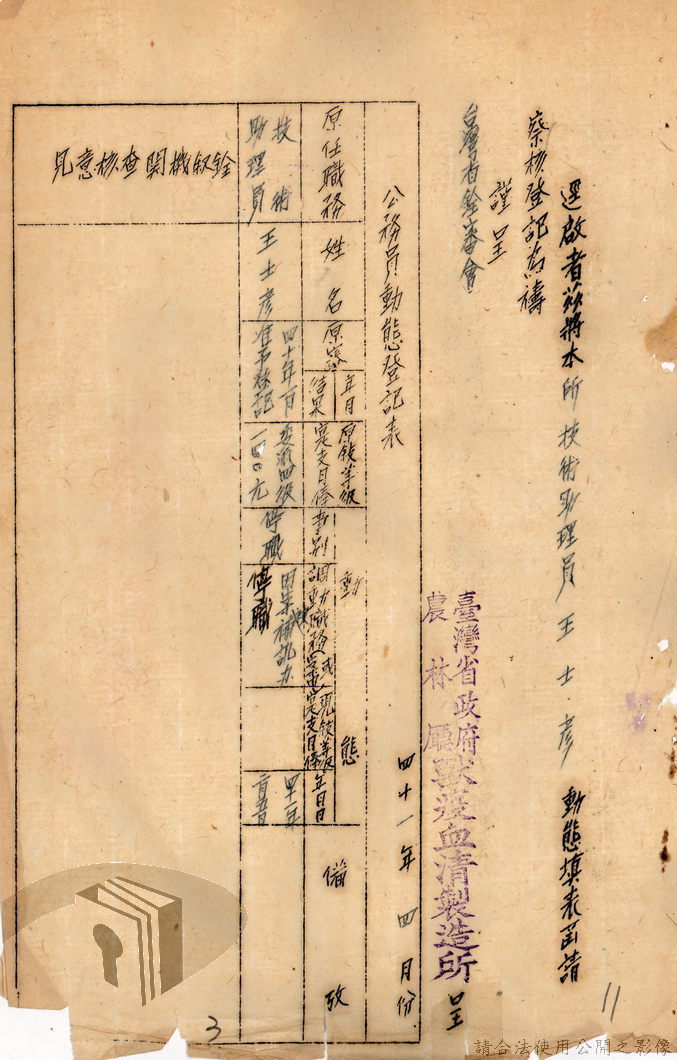 逕啟者茲將本所技術助理員王士彥動態填表函請
察核登記為禱
謹呈
台灣省銓審會
臺灣省政府
農林廳獸疫血清製造所 呈
公務員動態登記表 四十一年四月份
原任職務
姓名
原審
年月
結果
原敍等級
實支月俸
動態
事別
調動職務或
現敍等級
實支月俸
年月日
備攷
技術
助理員
王士彥
四十年一月
准予登記
委派四級
一四〇元
停職
停職
銓敘機關查核意見
11
3
請合法使用公開之影像